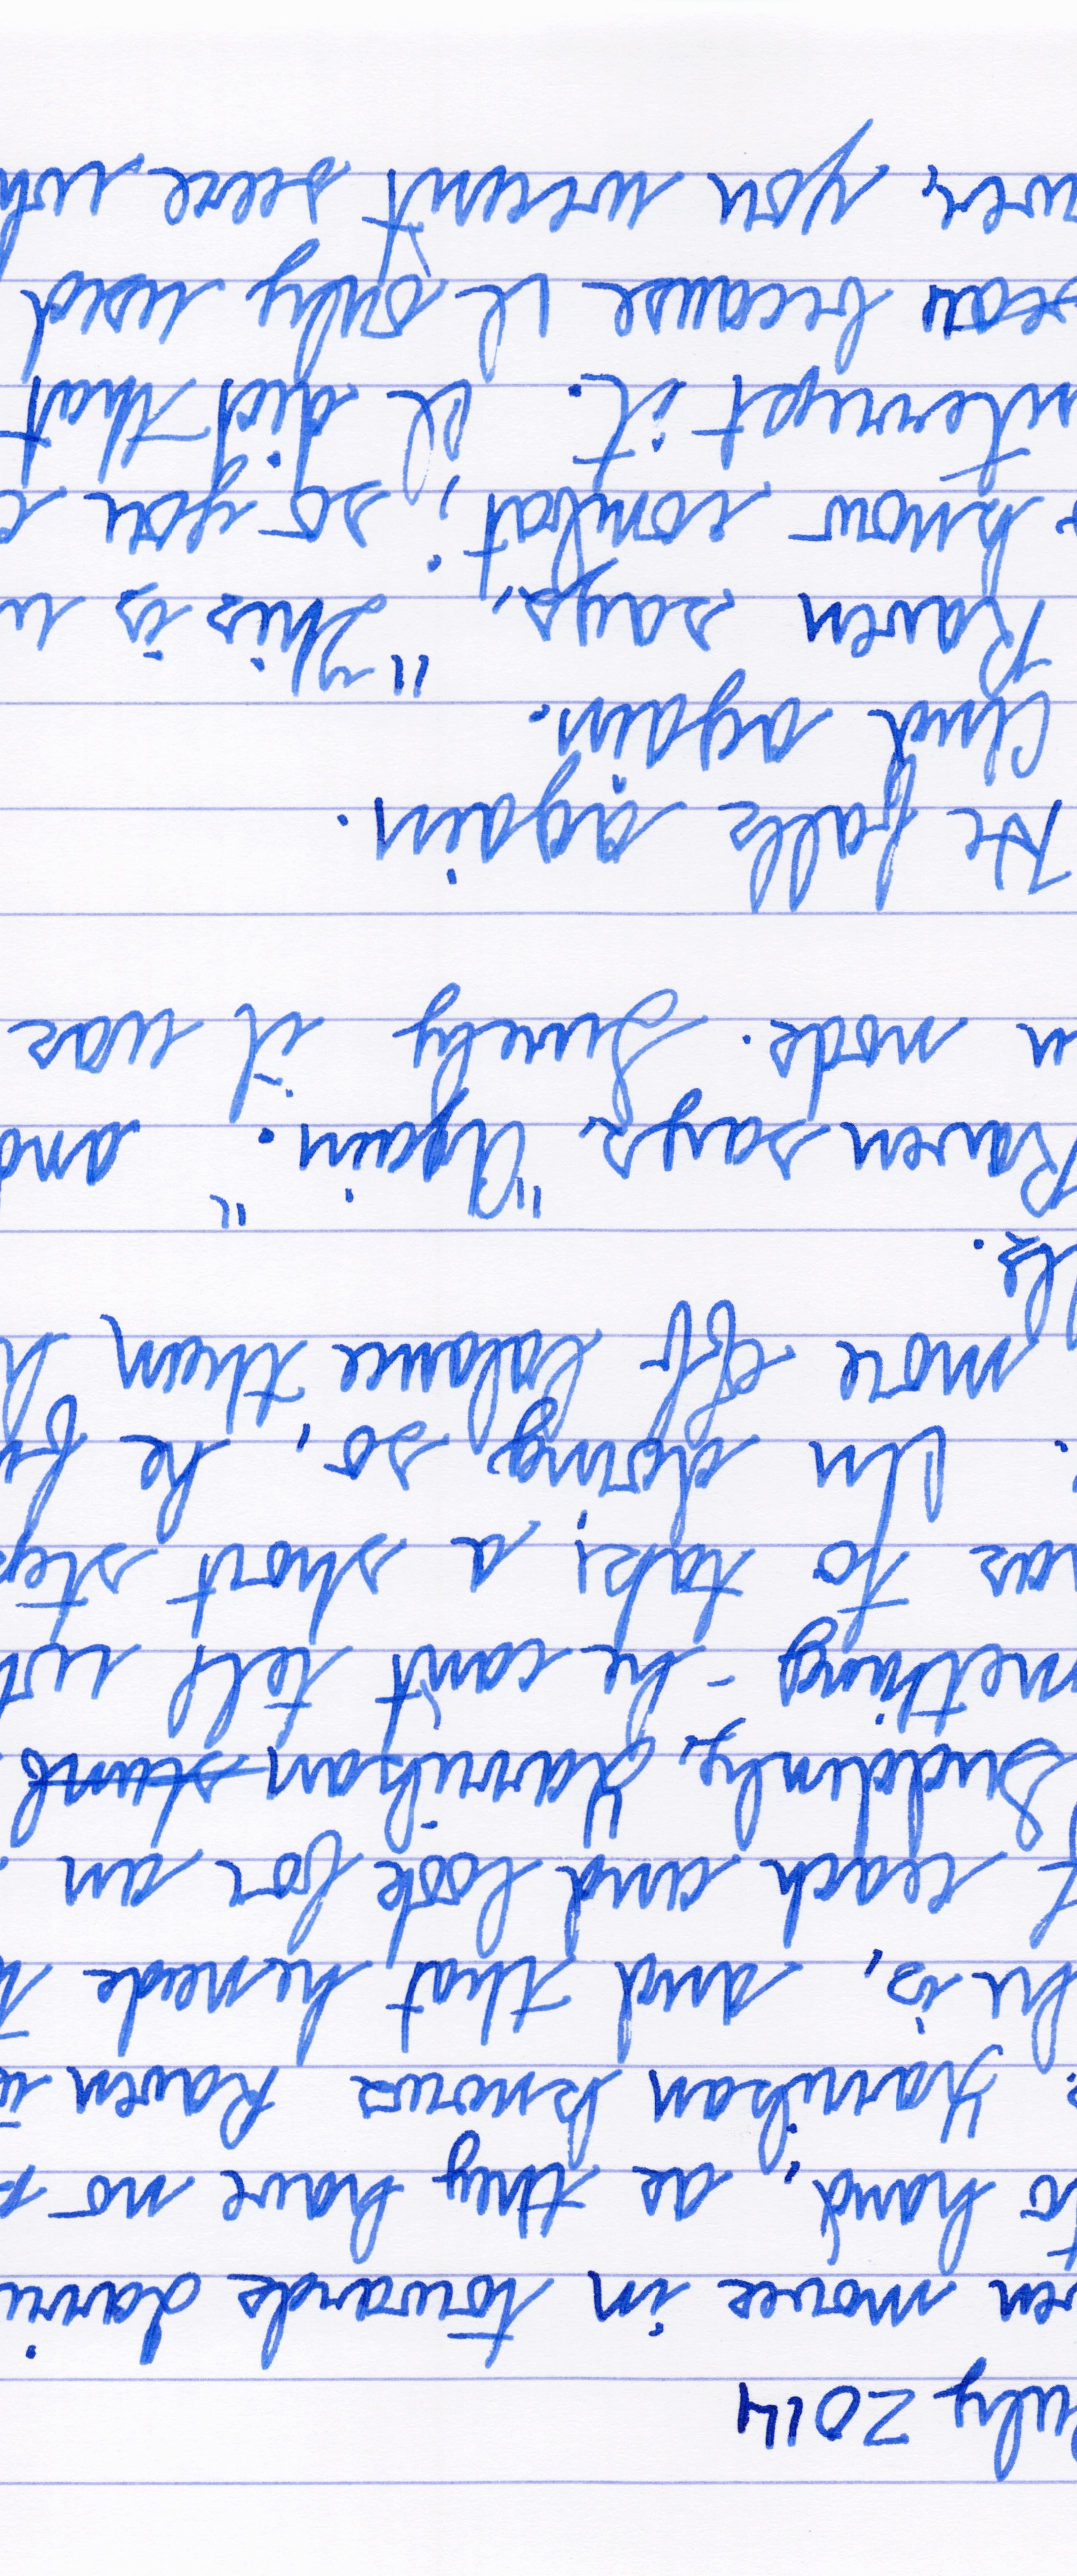 July 2014
en moves in towards Jarri
to hand, as they have no
Harrikan knows Raven i
he is, and that he needs
reach and look for an
Suddenly, Harrikan stumb
mething - he can't tell wh
has to take a short step
. In doing so, he fu
more off balance than h
lls.
Raven says "Again." and
n nods. Surely it was
He falls again.
And again.
Raven says, "This is
know combat, so you
nterrupt it. I did that
because I only used
wer, you weren't sure wh